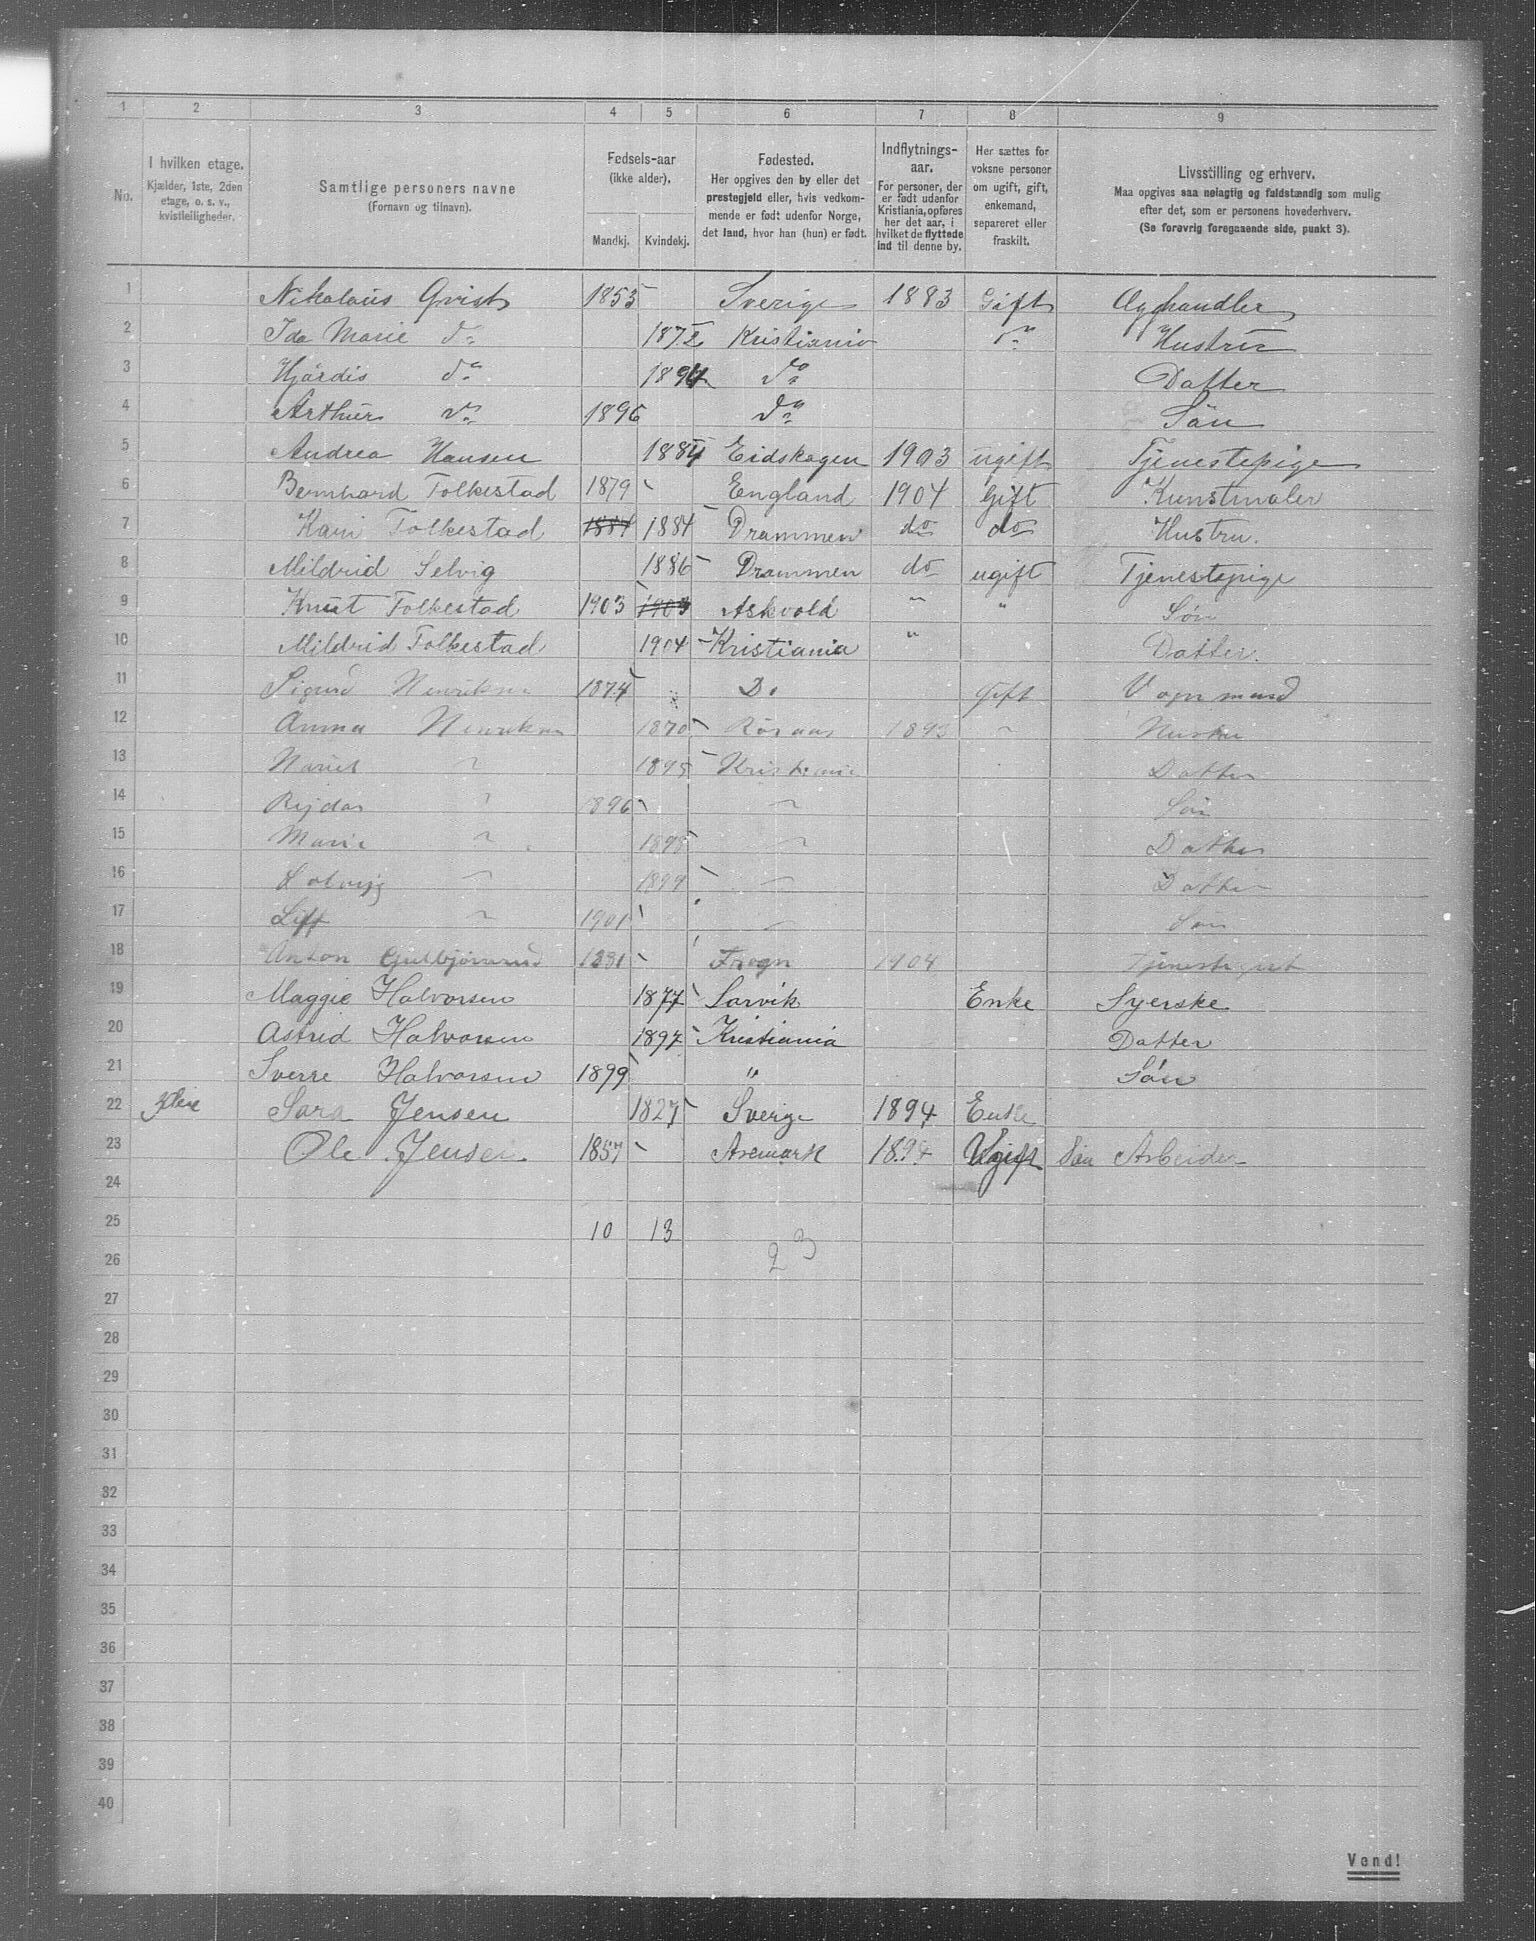 1 2 3 4 5 6 7 8 9
No.
I hvilken etage.
Kjælder, 1ste, 2den
etage, o. s. v.,
kvistleiligheder.
Samtlige personers navne
(Fornavn og tilnavn).
Fødsels-aar
(ikke alder).
Mandkj. Kvindekj.
Fødested.
Her opgives den by eller det
prestegjeld eller, hvis vedkom-
mende er født udenfor Norge,
det land, hvor han (hun) er født.
Indflytnings-
aar.
For personer, der
er født udenfor
Kristiania, opføres
her det aar, i
hvilket de flyttede
ind til denne by.
Her sættes for
voksne personer
om ugift, gift,
enkemand,
separeret eller
fraskilt.
Livsstilling og erhverv.
Maa opgives saa nøiagtig og fuldstændig som mulig
efter det, som er personens hovederhverv.
(Se forøvrig foregaaende side, punkt 3).
1 Nikolaus Qvist 1853 Sverige 1883 Gift Æghandler
2 Ida Marie do 1872 Kristiania do Hustru
3 Hjørdis do 1894 do Datter
4 Arthur do 1896 do Søn
5 Andrea Hansen 1884 Eidskogen 1903 ugift Tjenestepige
6 Bernhard Folkestad 1879 England 1904 Gift Kunstmaler
7 Kari Folkestad 1884 1884 Drammen do do Hustru.
8 Mildrid Selvig 1886 Drammen do ugift Tjenestepige
9 Knut Folkestad 1903 1903 Askvold " " Søn
10 Mildrid Folkestad 1904 Kristiania " Datter.
11 Sigurd Henriksen 1874 Do Gift Vognmand
12 Anna Henriksen 1870 Røraas 1893 " Hustru
13 " 1895 Kristiania Datter
14 Rejdar " 1896 " Søn
15 Marie " 1898 " Datter
16 Solveig " 1899 " Datter
17 " 1901 " Søn
18 Anton 1881 Frogn 1904
19 Maggie Halvorsen 1877 Larvik Enke Syerske
20 Astrid Halvorsen 1897 Kristiania Datter
21 Sverre Halvorsen 1899 " Søn
22 Sara Jensen 1827 Sverige 1894 Enke
23 Ole Jensen 1857 Aremark 1894 Ugift Søn Arbeider
24
25 10 13
26 23
27
28
29
30
31
32
33
34
35
36
37
38
39
40
Vend!